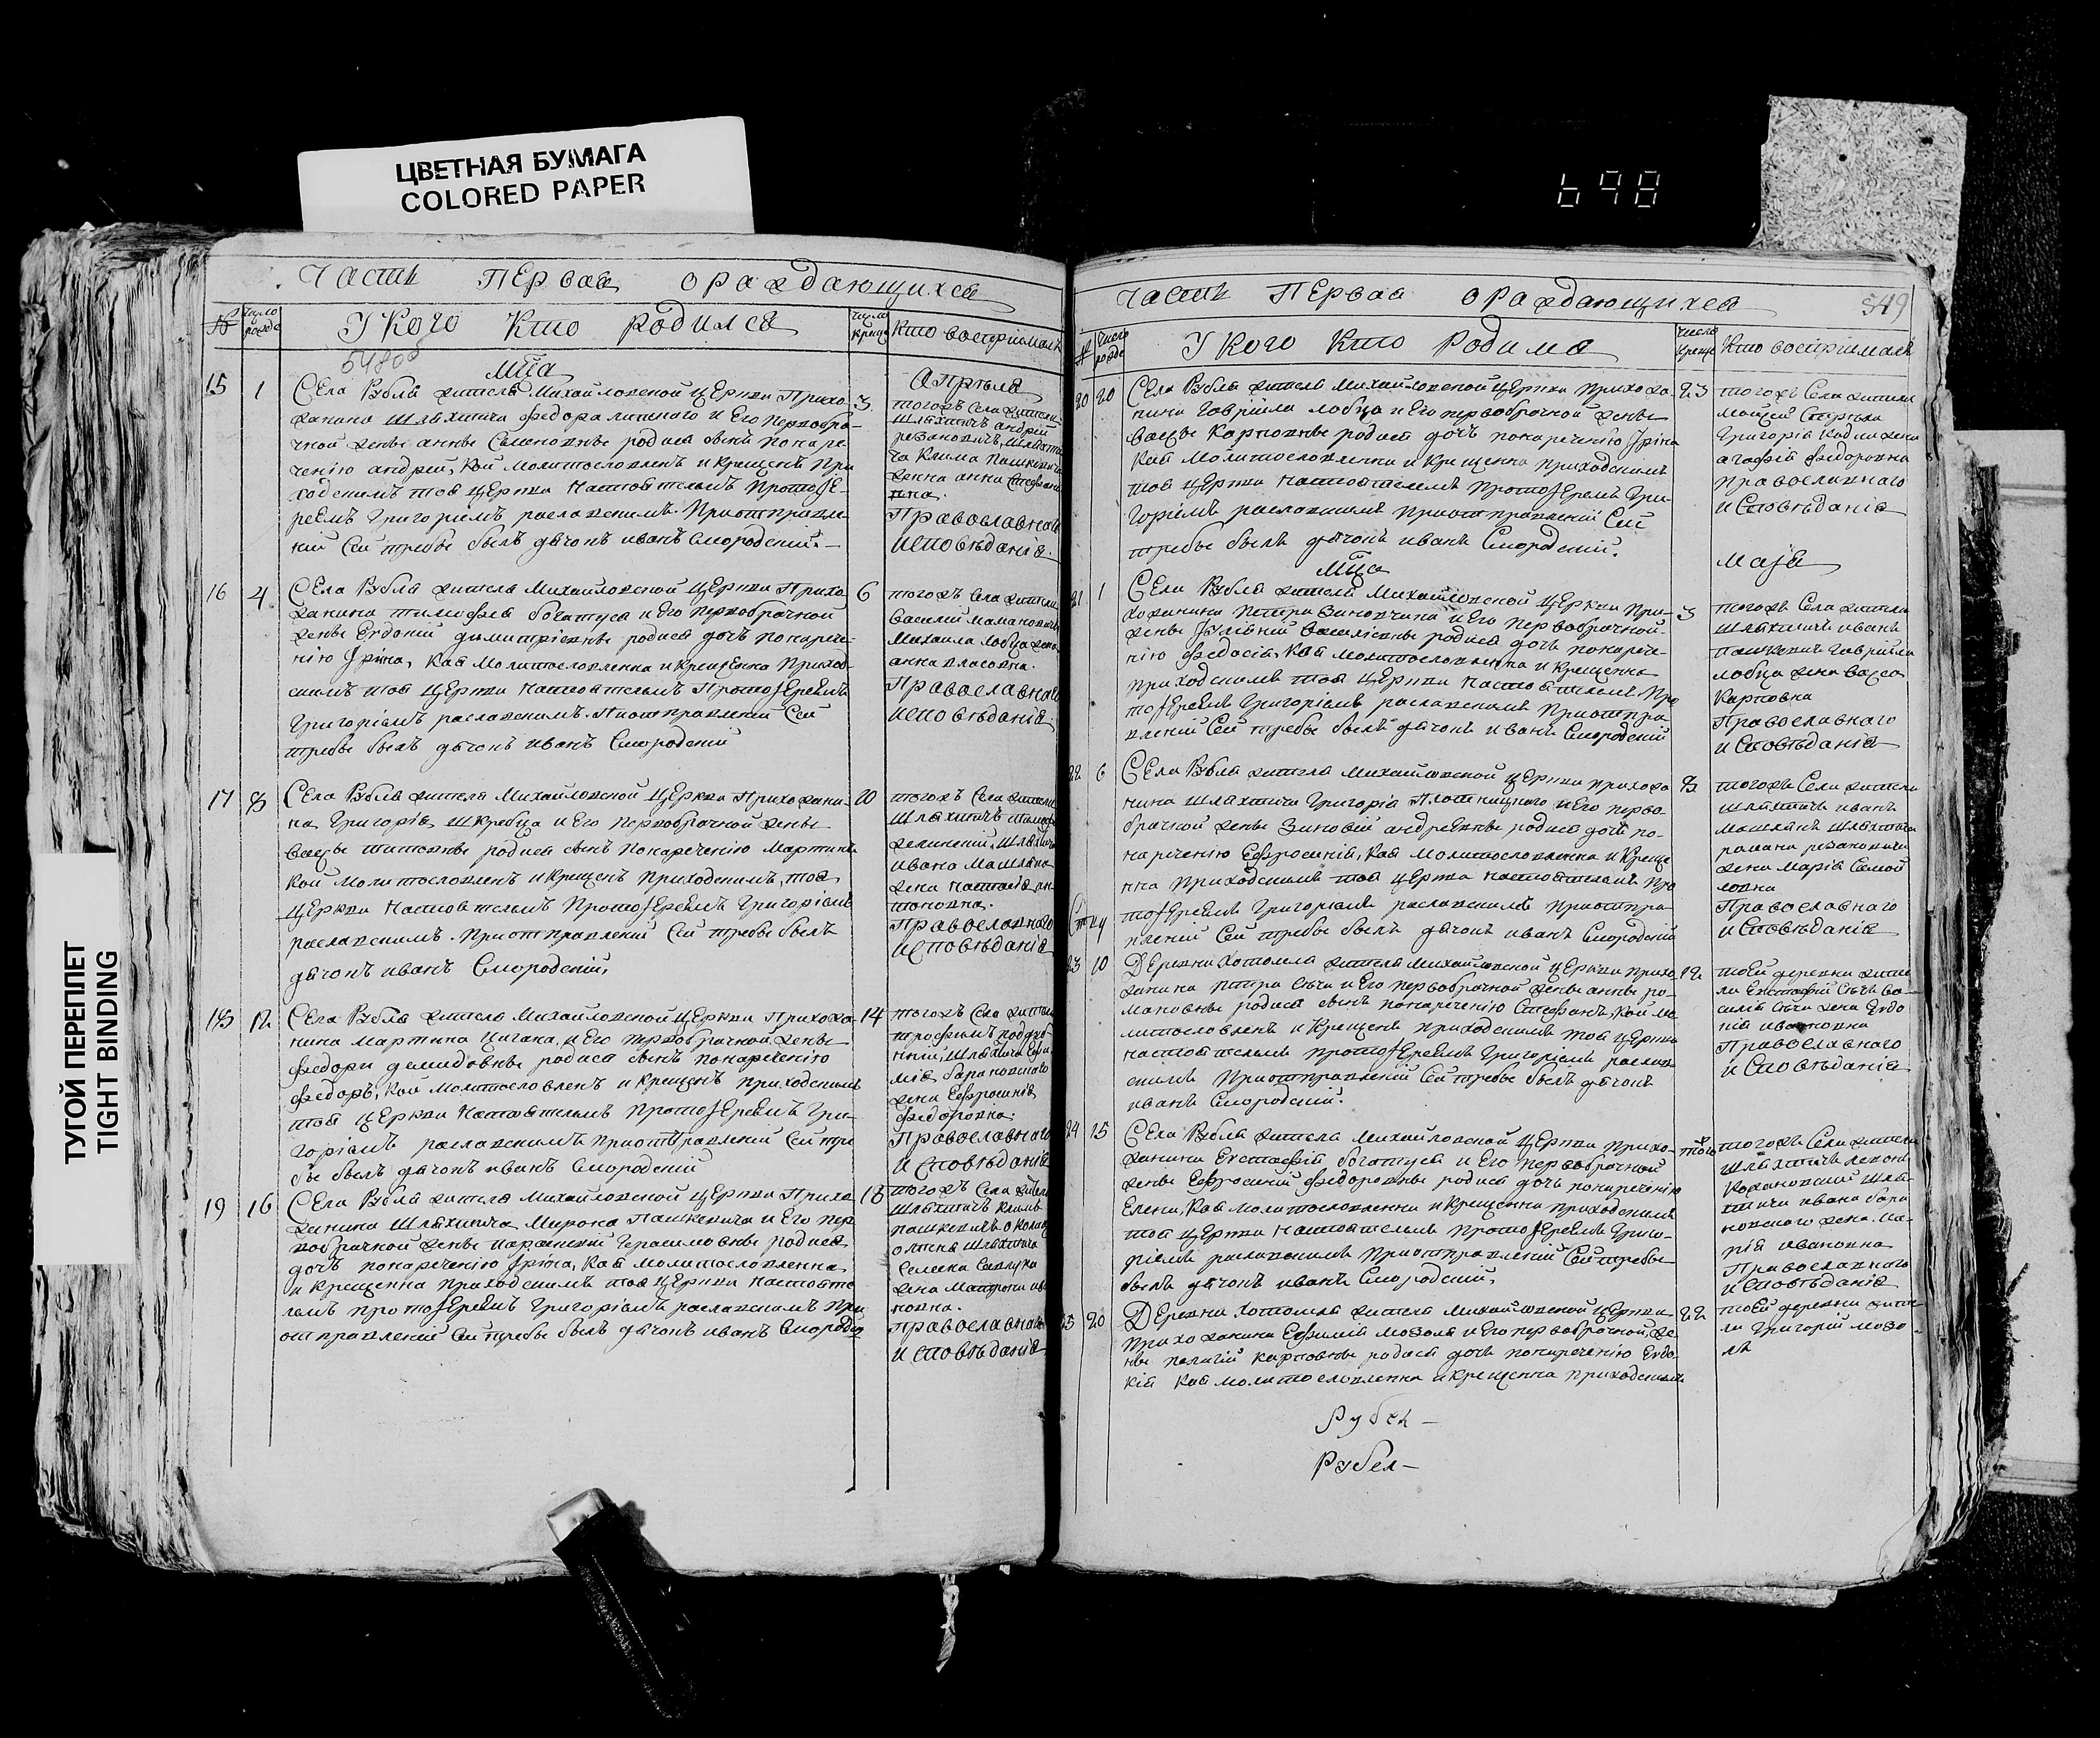 ЦВЕТНАЯ БУМАГА
COLORED PAPER
698
ТУГОЙ ПЕРЕПЛЕТ
TIGHT BINDING
Часть Первая о раждающихся
№
число рожде
У Кого Кто родился
число креще
Кто воспрiималъ
Мца
Априля
15 1
Села Рубля жителя Михайловской Церкви Прихо-
жанина Шляхтича Федора и Его первобра-
чной жены анны Семеновны родися сынъ по наре-
ченію андрей, кой молитвословленъ и крещенъ при
ходскимъ той Церкви настоятелемъ протоіе-
реемъ Григоріемъ раславскимъ. При отправле-
ніи сей требы былъ дьячокъ иванъ Смородскій.
3
тогожъ Села жители
Шляхтичъ андрей
Клима Пашкевича
жена анна
Православнаго
исповѣданія.
16 4
Села Рубля жителя Михайловской Церкви Прихо-
жанина тимофея богатуся и Его первобрачной
жены Евдокіи димитріевны родися дочь по нарече-
нію Іріна, кая молитвословленна и крещенна приход-
скимъ той Церкви настоятелемъ Протоіереемъ
Григоріемъ раславскимъ. При отправленіи сей
требы былъ дьячокъ иванъ Смородскій
6
тогожъ Села жители
Василій
Михаила Лобца жена
анна власовна.
Православнаго
исповѣданія.
17 8
Села Рубля жителя Михайловской Церкви Прихожани-
на Григорія Шкребца и Его первобрачной жены
Васы титовны родися сынъ по нареченію мартинъ
кой молитвословленъ и крещенъ приходскимъ той
Церкви настоятелемъ Протоіереемъ Григоріемъ
раславскимъ. При отправленіи сей требы былъ
дьячокъ иванъ Смородскій.
20
тогожъ Села жители
Шляхтичъ
Шляхтича
ивана Машляка
жена настасія ан-
тоновна.
Православнаго
исповѣданія
18 12
Села Рубля жителя Михайловской Церкви Прихожа-
нина мартина Цигана, и Его первобрачной жены
федоры демидовны родися сынъ по нареченію
федоръ, кой молитвословленъ и крещенъ приходскимъ
той Церкви настоятелемъ Протоіереемъ Гри-
горіемъ раславскимъ При отправленіи сей тре-
бы былъ дьячокъ иванъ Смородскій
14
тогожъ Села жители
трофимъ поддуб-
ный, Шляхтича
барановского
жена Ефросинія
федоровна.
Православнаго
исповѣданія
19 16
Села Рубля жителя Михайловской Церкви Прихо-
жанина Шляхтича Мирона Пашкевича и Его пер-
вобрачной жены параскевіи Герасимовны родися
дочь по нареченію Іріна, кая молитвословленна
и крещенна приходскимъ той Церкви настояте-
лемъ протоіереемъ Григоріемъ раславскимъ При
отправленіи сей требы былъ дьячокъ иванъ Смородск
18
тогожъ Села жители
Шляхтичъ климъ
пашкевичъ
Шляхтича
жена Матрона ива-
новна.
Православнаго
исповѣданія
Часть Первая о раждающихся
549
№
число рожде
У Кого Кто Родился
число креще
Кто воспрiималъ
20 20
Села Рубля жителя Михайловской Церкви прихожа-
нина Гавріила лобца и Его первобрачной жены
Васы Карповны родися дочь по нареченію Іріна
кая молитвословленна и крещенна приходскимъ
той Церкви настоятелемъ Протоіереемъ Гри-
горіемъ раславскимъ При отправленіи сей
требы былъ дьячокъ иванъ Смородскій.
23
тогожъ Села жители
Григорія жена
агафія федоровна
Православнаго
исповѣданія
Мца
Маія
21 1
Села Рубля жителя Михайловской Церкви при-
хожанина петра Зиновчика и Его первобрачной
жены Іуліаніи Василіевны родися дочь по нарече-
нію федосія, кая молитвословленна и крещенна
приходскимъ той Церкви настоятелемъ Про-
тоіереемъ Григоріемъ раславскимъ При отпра-
вленіи сей требы былъ дьячокъ иванъ Смородскій
3
тогожъ Села жители
Шляхтичъ иванъ
пашкевичъ Гавріила
лобца жена Васа
Карповна
Православнаго
исповѣданія
22 6
Села Рубля жителя Михайловской Церкви прихожа
нина Шляхтича Григорія Плотницкого и Его перво-
брачной жены Зиновіи андреевны родися дочь по-
нареченію Ефросинія, кая молитвословленна и креще
нна приходскимъ той Церкви настоятелемъ Про
тоіереемъ Григоріемъ раславскимъ При отпра-
вленіи сей требы былъ дьячокъ иванъ Смородскій
8
тогожъ Села жители
Шляхтичъ иванъ
машлякъ Шляхтича
романа
жена Марія Самой
ловна
Православнаго
исповѣданія
23 10
Деревни Хотомля жителя Михайловской Церкви прихо-
жанина петра Сыча и Его первобрачной жены анны ро-
мановны родися сынъ по нареченію Стефанъ, кой мо-
литвословленъ и крещенъ приходскимъ той Церкви
настоятелемъ протоіереемъ Григоріемъ раслав-
скимъ При отправленіи сей требы былъ дьячокъ
иванъ Смородскій.
12
той деревни жите
ли Евстафій Сычъ ва-
силія Сыча жена Евдо
кія ивановна
Православнаго
исповѣданія
24 15
Села Рубля жителя Михайловской Церкви прихо-
жанина Евстафія богатуся и Его первобрачной
жены Ефросиніи федоровны родися дочь по нареченію
Елена, кая молитвословленна и крещенна приходскимъ
той Церкви настоятелемъ Протоіереемъ Григо-
ріемъ раславскимъ При отправленіи сей требы
былъ дьячокъ иванъ Смородскій.
тогожъ Села жители
Шляхтичъ
Шля-
хтича ивана бара
новского жена ма-
рія ивановна
Православнаго
исповѣданія
25 20
Деревни Хотомля жителя Михайловской Церкви
прихожанина Ефимія мозоля и Его первобрачной, же-
ны пелагіи карповны родися дочь по нареченію Евдо-
кія кая молитвословленна и крещенна приходскимъ
22
той деревни жите-
ли Григорій мозо-
ль
Рубель
Рубел